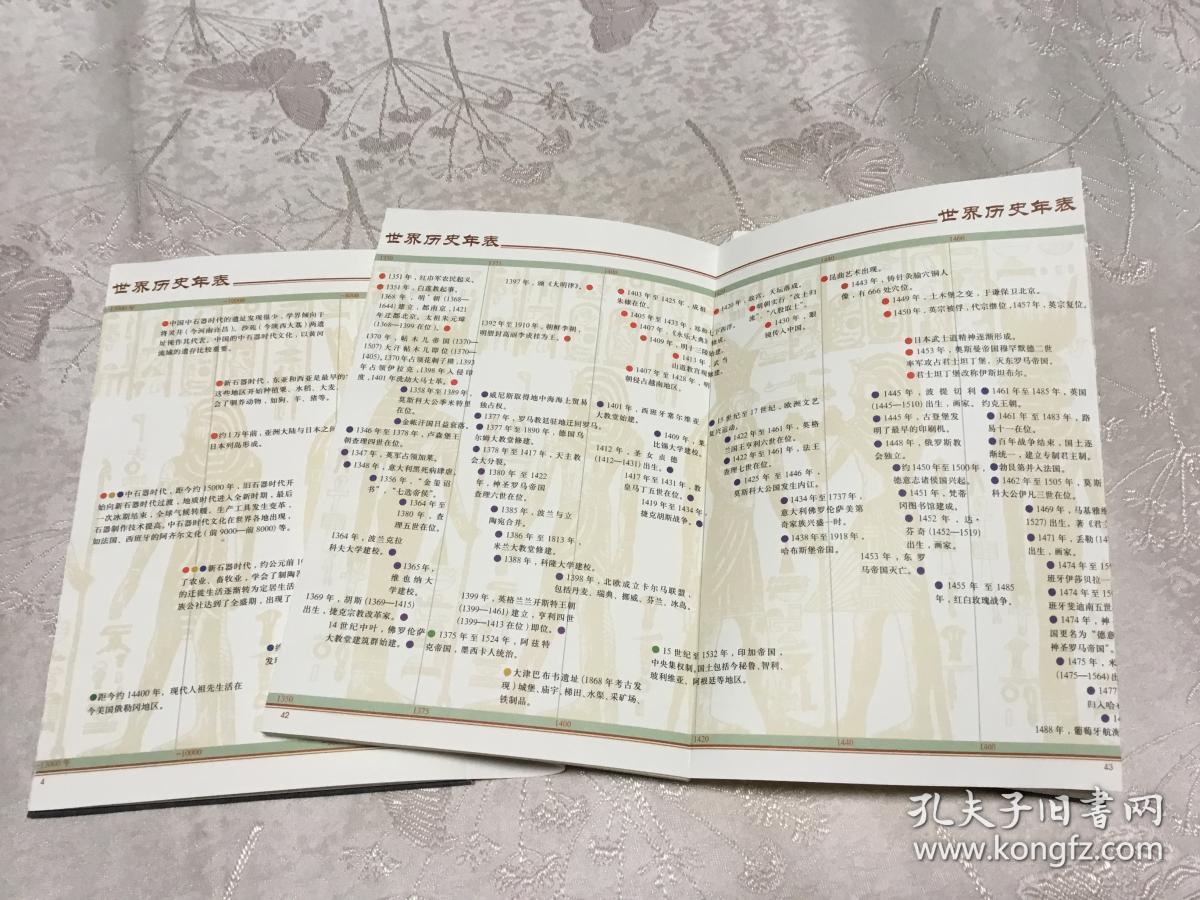 世界历史年表
-10000
-8000
中国中石器时代的遗址发现很少，学界倾向于
将灵井（今河南许昌）、沙苑（今陕西大荔）两遗
址视作其代表。中国的中石器时代文化，以黄河
流域的遗存比较重要。
新石器时代，东亚和西亚是最早的
这些地区开始种植粟、水稻、大麦、
会了驯养动物，如狗、羊、猪等。
约1万年前，亚洲大陆与日本之间
日本列岛形成。
中石器时代，距今约15000年，旧石器时代开
始向新石器时代过渡，地质时代进入全新时期，最后
一次冰期结束，全球气候转暖，生产工具发生变革，
石器制作技术提高。中石器时代文化在世界各地出现，
如法国、西班牙的阿齐尔文化（前9000—前8000）等。
新石器时代，约公元前
了农业、畜牧业，学会了制陶
的迁徙生活逐渐转为定居生活
族公社达到了全盛期，出现了
距今约14400年，现代人祖先生活在
今美国俄勒冈地区。
-10000
4
世界历史年表
1350
1375
1400
1351年，红巾军农民起义。
1351年，白莲教起事。
1368年，明朝（1368—
1644）建立，都南京，1421
年迁都北京。太祖朱元璋
（1368—1399在位）。
1370年，帖木儿帝国（1370—
1507）大汗帖木儿即位（1370—
1405），1370年占领花剌子模，1393
年占领伊拉克，1398年入侵印
度，1401年洗劫大马士革。
1358年至1389年，
莫斯科大公季米特里
在位。
金帐汗国日益衰落。
1346年至1378年，卢森堡王
朝查理四世在位。
1347年，英军占领加莱。
1348年，意大利黑死病肆虐。
1356年，“金玺诏
书”，“七选帝侯”。
1364年至
1380年，查
理五世在位。
1364年，波兰克拉
科夫大学建校。
1365年，
维也纳大
学建校。
1369年，胡斯（1369—1415）
出生，捷克宗教改革家。
14世纪中叶，佛罗伦萨
大教堂建筑群始建。
1397年，颁《大明律》。
1392年至1910年，朝鲜李朝，
明册封高丽李成桂为王。
威尼斯取得地中海海上贸易
独占权。
1377年，罗马教廷驻地迁回罗马。
1377年至1890年，德国乌
尔姆大教堂修建。
1378年至1417年，天主教
会大分裂。
1380年至1422
年，神圣罗马帝国
查理六世在位。
1385年，波兰与立
陶宛合并。
1386年至1813年，
米兰大教堂修建。
1388年，科隆大学建校。
1398年，北欧成立卡尔马联盟，
包括丹麦、瑞典、挪威、芬兰、冰岛。
1399年，英格兰兰开斯特王朝
（1399—1461）建立，亨利四世
（1399—1413在位）即位。
1375年至1524年，阿兹特
克帝国，墨西卡人统治。
大津巴布韦遗址（1868年考古发
现）城堡、庙宇、梯田、水渠、采矿场、
铁制品。
1403年至1425年，成祖
朱棣在位。
1405年至1433年，郑和七下西洋。
1407年，《永乐大典》修成。
1409年，明十三陵始建。
1413年，武当
山道教宫观修建。
1407年至1428年，明
朝侵占越南地区。
1401年，西班牙塞尔维亚
大教堂始建。
1409年，莱
比锡大学建校。
1412年，圣女贞德
（1412—1431）出生。
1417年至1431年，教
皇马丁五世在位。
1419年至1434年，
捷克胡斯战争。
1350
42
1375
1400
世界历史年表
1440
1460
1420年，故宫、天坛落成。
明朝实行“改土归
流”，“八股取士”。
1430年，眼
镜传入中国。
15世纪至17世纪，欧洲文艺
复兴运动。
1422年至1461年，英格
兰国王亨利六世在位。
1422年至1461年，法王
查理七世在位。
1425年至1446年，
莫斯科大公国发生内讧。
1434年至1737年，
意大利佛罗伦萨美第
奇家族兴盛一时。
1438年至1918年，
哈布斯堡帝国。
15世纪至1532年，印加帝国，
中央集权制，国土包括今秘鲁、智利、
玻利维亚、阿根廷等地区。
昆曲艺术出现。
1443年，铸针灸腧穴铜人
像，有666处穴位。
1449年，土木堡之变，于谦保卫北京。
1450年，英宗被俘，代宗继位，1457年，英宗复位。
日本武士道精神逐渐形成。
1453年，奥斯曼帝国穆罕默德二世
率军攻占君士坦丁堡，灭东罗马帝国。
君士坦丁堡改称伊斯坦布尔。
1445年，波提切利
（1445—1510）出生，画家。
1445年，古登堡发
明了最早的印刷机。
1448年，俄罗斯教
会独立。
约1450年至1500年，
德意志诸侯国兴起。
1451年，梵蒂
冈图书馆建成。
1452年，达·
芬奇（1452—1519）
出生，画家。
1453年，东罗
马帝国灭亡。
1455年至1485
年，红白玫瑰战争。
1461年至1485年，英国
约克王朝。
1461年至1483年，路
易十一在位。
百年战争结束，国土逐
渐统一，建立专制君主制。
勃艮第并入法国。
1462年至1505年，莫斯
科大公伊凡三世在位。
1469年，马基雅维
1527）出生，著《君主
1471年，丢勒（14
出生，画家。
1474年至15
班牙伊莎贝拉一
1474年至15
班牙斐迪南五世
1474年，神
国更名为“德意
神圣罗马帝国”。
1475年，米
（1475—1564）出
1477
归入哈
1488年，葡萄牙航海
1420
1440
1460
43
孔夫子旧书网
www.kongfz.com